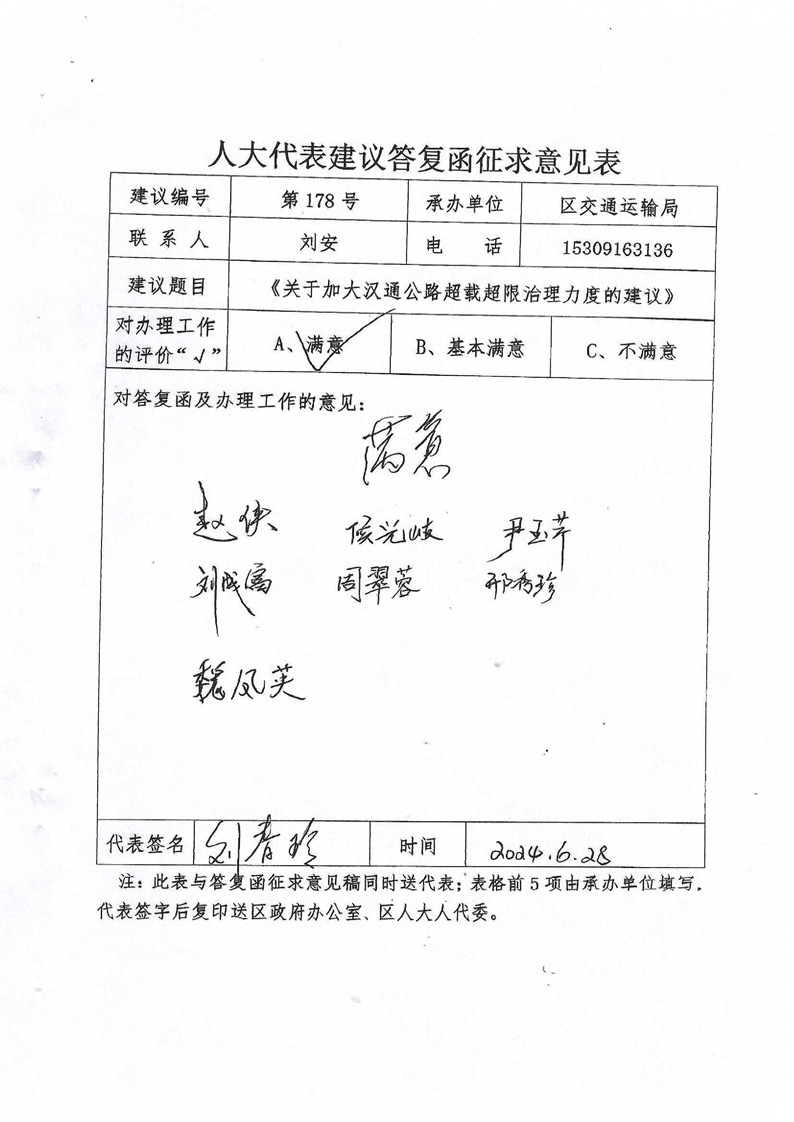 人大代表建议答复函征求意见表
建议编号 第 178 号 承办单位 区交通运输局
联 系 人 刘安 电 话 15309163136
建议题目 《关于加大汉通公路超载超限治理力度的建议》
对办理工作的评价“√” A、满意 B、基本满意 C、不满意
对答复函及办理工作的意见:
满意
赵侠 侯光岐 尹玉芹
刘成富 周翠蓉 邢秀珍
魏凤英
代表签名 刘春玲 时间 2024.6.28
注: 此表与答复函征求意见稿同时送代表; 表格前 5 项由承办单位填写,
代表签字后复印送区政府办公室、区人大人代委。